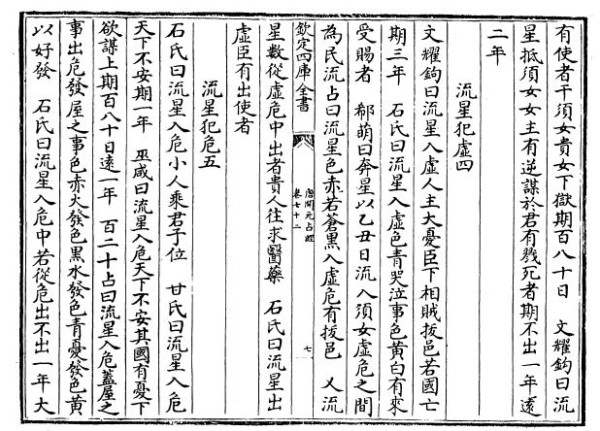 有使者干須女貴女下獄期百八十日　文耀鉤曰流
星抵須女女主有逆謀於君有戮死者期不出一年遠
二年
流星犯虛四
文耀鉤曰流星入虛人主大憂臣下相賊拔邑若國亡
期三年　石氏曰流星入虛色青哭泣事色黃白有來
受賜者　郗萌曰奔星以乙丑日流入須女虛危之間
為民流占曰流星色赤若蒼黑入虛危有拔邑　又流
欽定四庫全書
唐開元占經
卷七十二
七
星數從虛危中出者貴人往求醫藥　石氏曰流星出
虛臣有出使者
流星犯危五
石氏曰流星入危小人乘君子位　甘氏曰流星入危
天下不安期一年　巫咸曰流星入危天下不安其國有憂下
欲謀上期百八十日遠一年　百二十占曰流星入危蓋屋之
事出危發屋之事色赤火發色黑水發色青憂發色黃
以好發　石氏曰流星入危中若從危出不出一年大